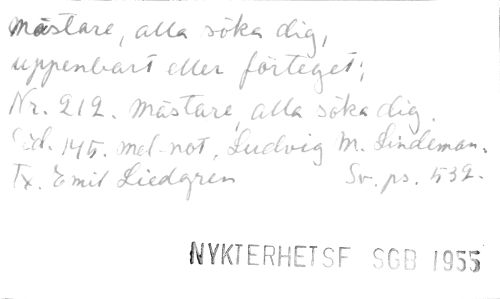 Mästare, alla söka dig,
uppenbart eller förteget;
Nr. 212. Mästare, alla söka dig.
Sid. 145. mel-not. Ludvig M. Lindeman.
Tx. Emil Liedgren Sv. ps. 532.
NYKTERHETSF SGB 1955